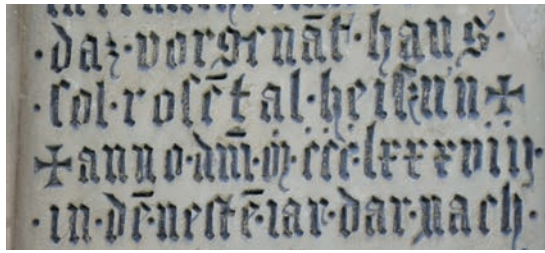 ·daz·vorgenāt·haus·
·sol·rosētal·heissen✠
✠anno·dm̄·m·ccc·lxxxviii·
·in·dē·nestē·iar·dar·nach·